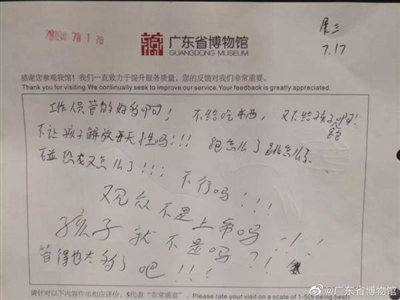 广东省博物馆
GUANGDONG MUSEUM
7.17
感谢您参观我馆!我们一直致力于提升服务质量,您的反馈对我们非常重要。
Thank you for visiting.We continually seek to improve our service.Your feedback is greatly appreciated.
保管的好多啊! 不给吃东西, 又不给孩子
不让孩子解放天性吗!!! 跑怎么了跳怎么了
碰恐龙又怎么了!!!
不行吗!!!
观众不是上帝吗!!!
孩子就不是吗?!!
管得也太多了吧!!!
请针对以下内容作出相应评价。5代表"非常满意"。 Please rate your visit on a scale of 1-5(5 being
@广东省博物馆